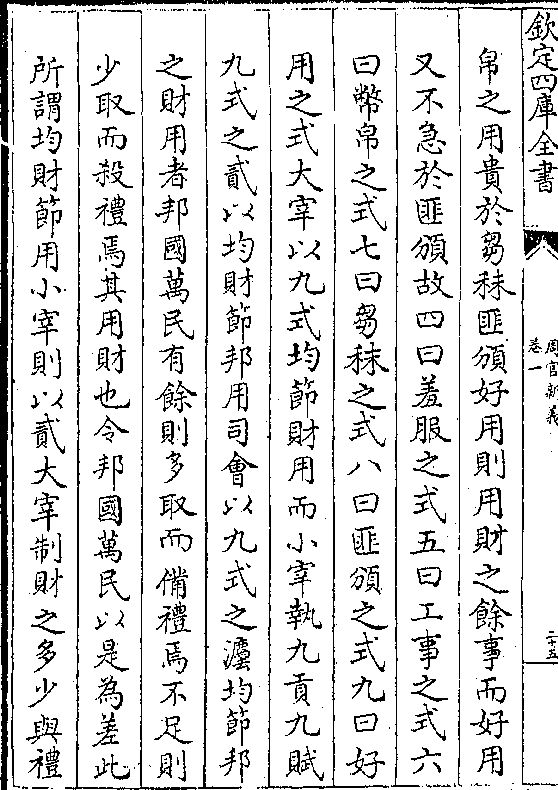 欽定四庫全書
周官新義
卷一
二十五
帛之用貴於芻秣匪頒好用則用財之餘事而好用
又不急於匪頒故四曰羞服之式五曰工事之式六
曰幣帛之式七曰芻秣之式八曰匪頒之式九曰好
用之式大宰以九式均節財用而小宰執九貢九賦
九式之貳以均財節邦用司會以九式之灋均節邦
之財用者邦國萬民有餘則多取而備禮焉不足則
少取而殺禮焉其用財也令邦國萬民以是為差此
所謂均財節用小宰則以貳大宰制財之多少與禮